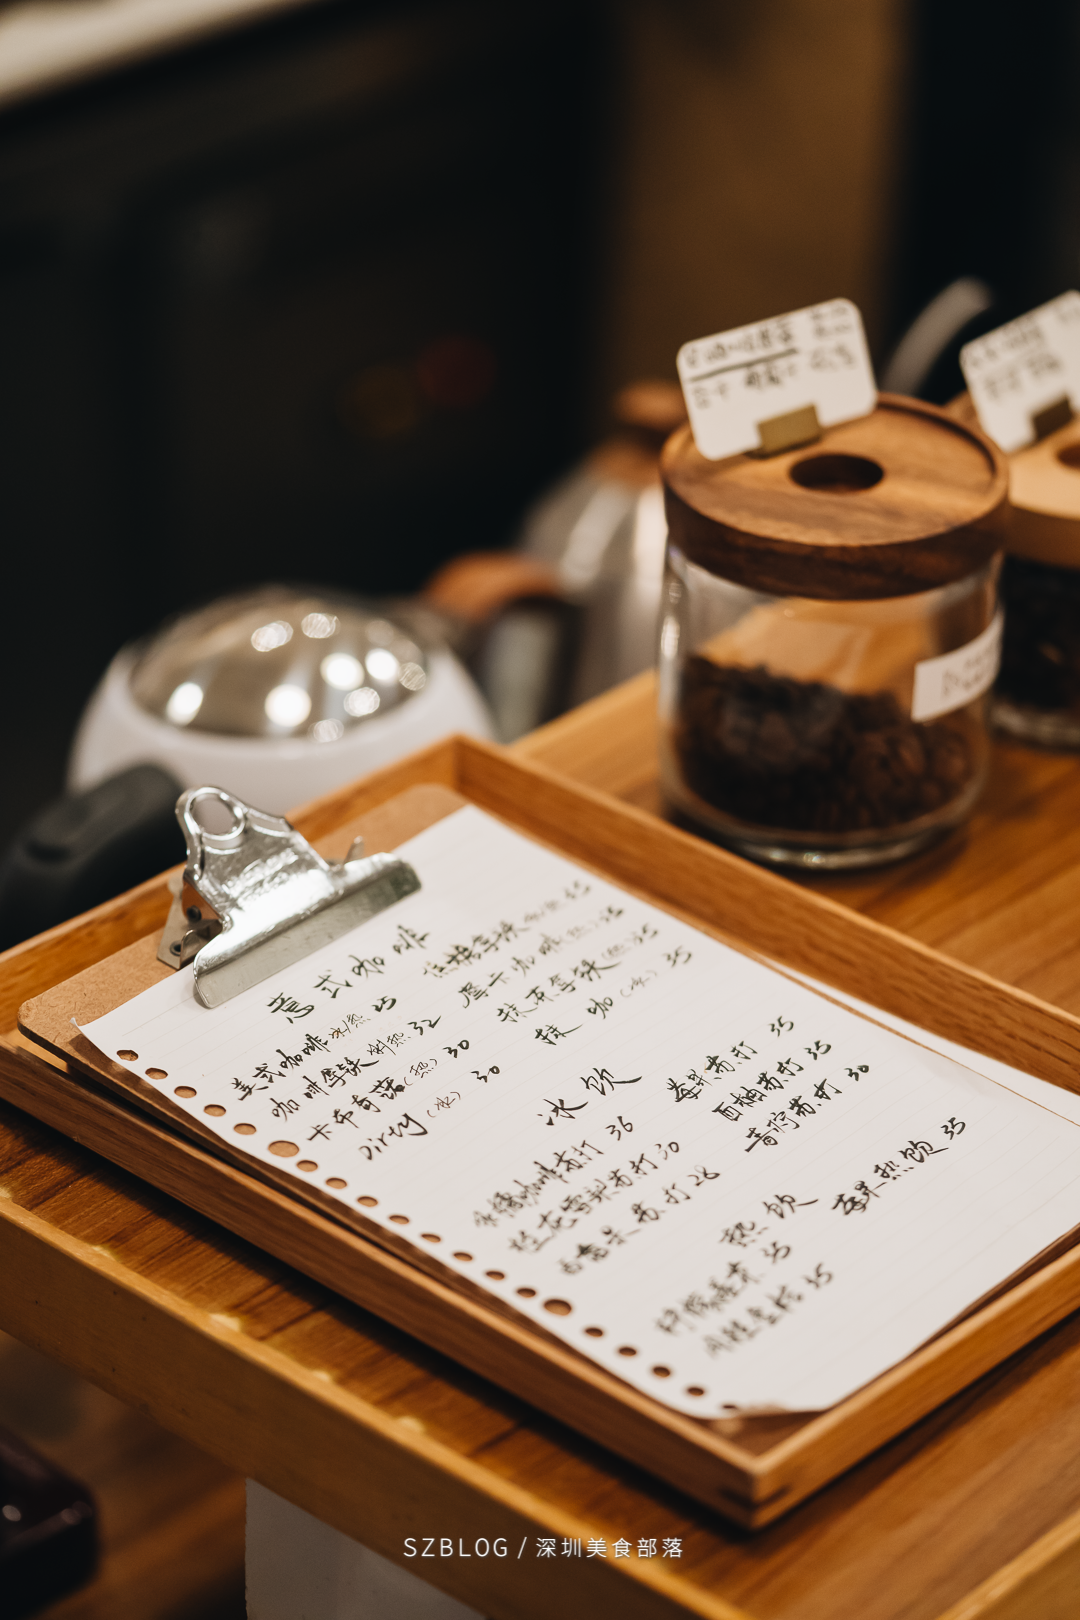 意式咖啡
美式咖啡 冰/热 25
咖啡拿铁 冰/热 32
卡布奇诺(热) 30
Dirty(冰) 30
焦糖拿铁 35
摩卡咖啡(热) 35
抹茶拿铁 35
抹咖(冰) 35
冰饮
咖啡苏打 36
桂花雪梨苏打 30
百香果苏打 28
苹果苏打 35
西柚苏打 35
青柠苏打 30
热饮
35
35
苹果热饮 35
SZBLOG / 深圳美食部落